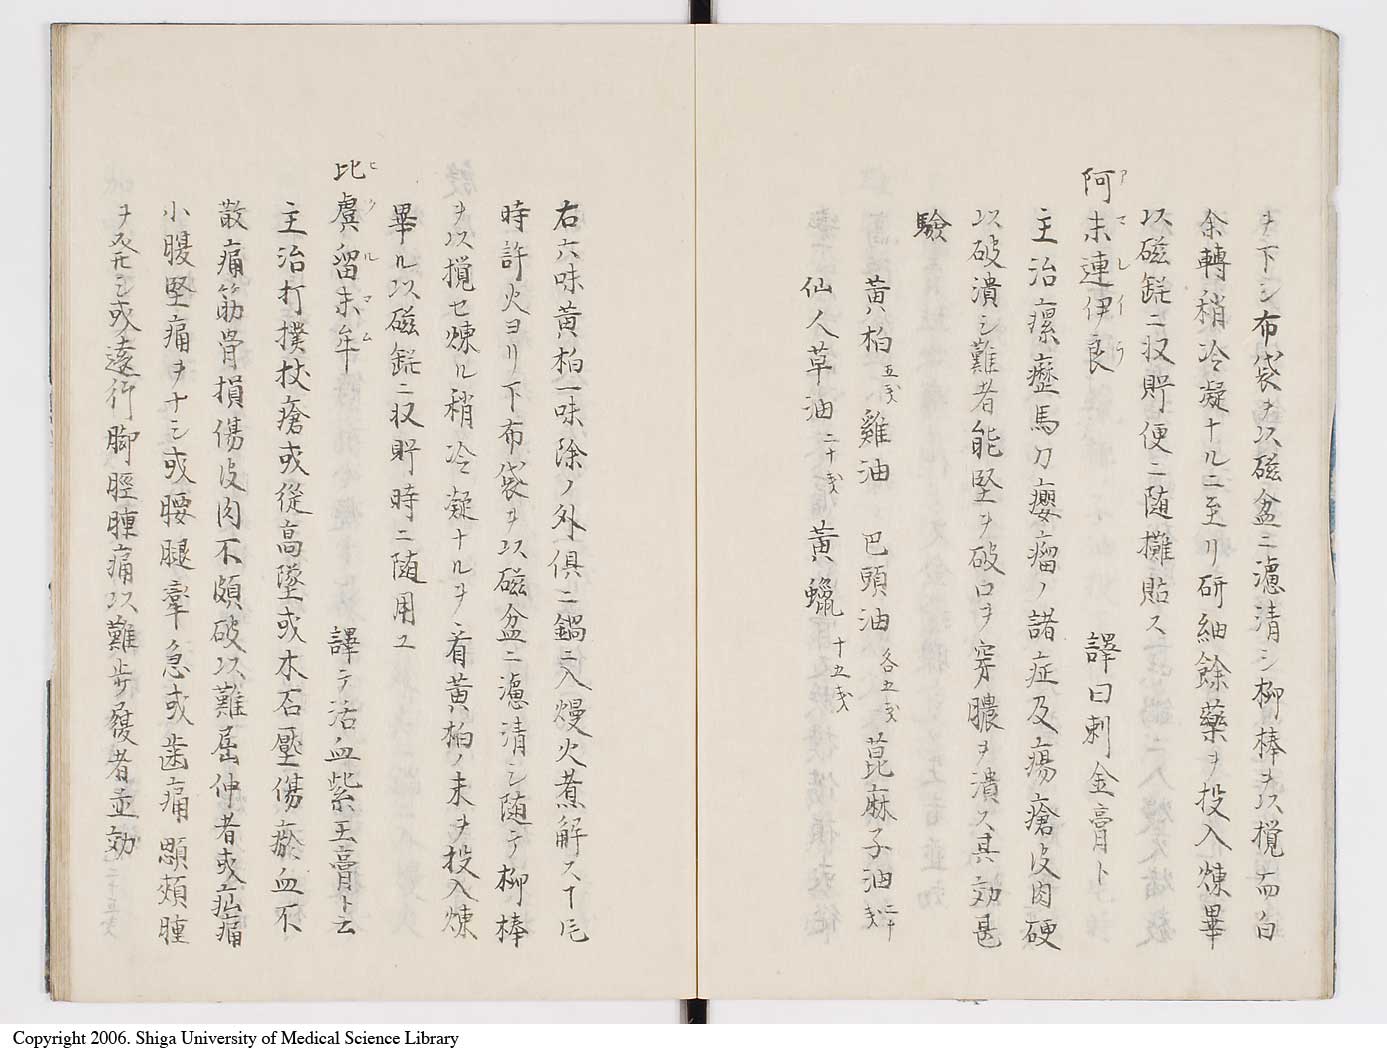 ヲ下シ布袋ヲ以磁盆ニ濾清シ柳棒ヲ以攪而白
余轉稍冷凝ナルニ至リ研細餘藥ヲ投入煉畢
以磁鋩ニ収貯便ニ随攤貼ス
阿末連伊良 譯曰刺金膏ト
アマレイラ
主治瘰癧馬刀癭瘤ノ諸症及瘍瘡皮肉硬
以破潰シ難者能堅ヲ破口ヲ穿膿ヲ潰ス其効甚
驗
黄柏 五戔 雞油 巴頭油 各五戔 蓖麻子油 二十戔
仙人草油 二十戔 黄蠟 十五戔
右六味黄柏一味除ノ外俱ニ鍋ニ入熳火煮解ス
時許火ヨリ下布袋ヲ以磁盆ニ濾清シ随テ柳棒
ヲ以攪セ煉ル稍冷凝ナルヲ看黄柏ノ末ヲ投入煉
畢ル以磁鋩ニ収貯時ニ随用ユ
比虞留末牟 譯テ活血紫玉膏ト云
ヒクルマム
主治打撲杖瘡或従高墜或木石壓傷瘀血不
散痛筋骨損傷皮肉不頗破以難屈伸者或疝痛
小腹堅痛ヲナシ或腰腿攣急或歯痛顋頰腫
ヲ発シ或遠行脚脛腫痛以難歩履者並効
Copyright 2006. Shiga University of Medical Science Library